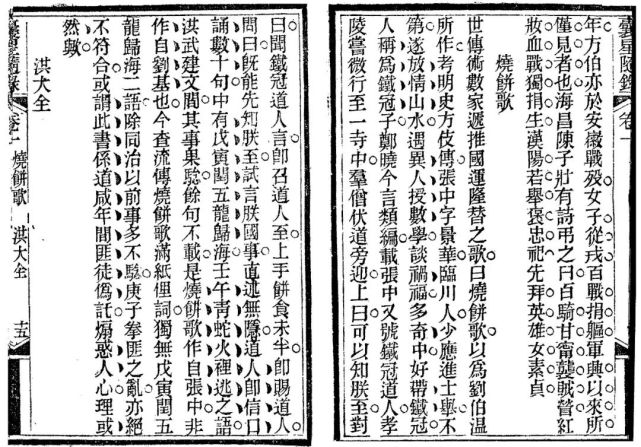 年方伯亦於安徽戰歿女子從戎百戰捐軀軍興以來所
僅見者也海昌陳子壯有詩弔之曰百騎甘甯襲賊營紅
妝血戰獨捐生漢陽若舉褒忠祀先拜英雄女素貞
燒餅歌
世傳術數家遞推國運隆替之歌曰燒餅歌以為劉伯溫
所作考明史方伎傳張中字景華臨川人少應進士舉不
第遂放情山水遇異人授數學談禍福多奇中好帶鐵冠
人稱為鐵冠子鄭曉今言類編載張中又號鐵冠道人孝
陵嘗微行至一寺中羣僧伏道旁迎上曰可以知朕至對
曰聞鐵冠道人言卽召道人至上手餅食未半卽賜道人
問曰旣能先知朕至試言朕國事直述無隱道人卽信口
誦數十句中有戊寅閏五龍歸海壬午青蛇火裡逃之語
洪武建文間其事果驗餘句不載是燒餅歌作自張中非
作自劉基也今查流傳燒餅歌滿紙俚詞獨無戊寅閏五
龍歸海二語除同治以前事多不驗庚子拳匪之亂亦絕
不符合或謂此書係道咸年間匪徒偽託煽惑人心理或
然歟
洪大全
卷一 燒餅歌 洪大全 十五